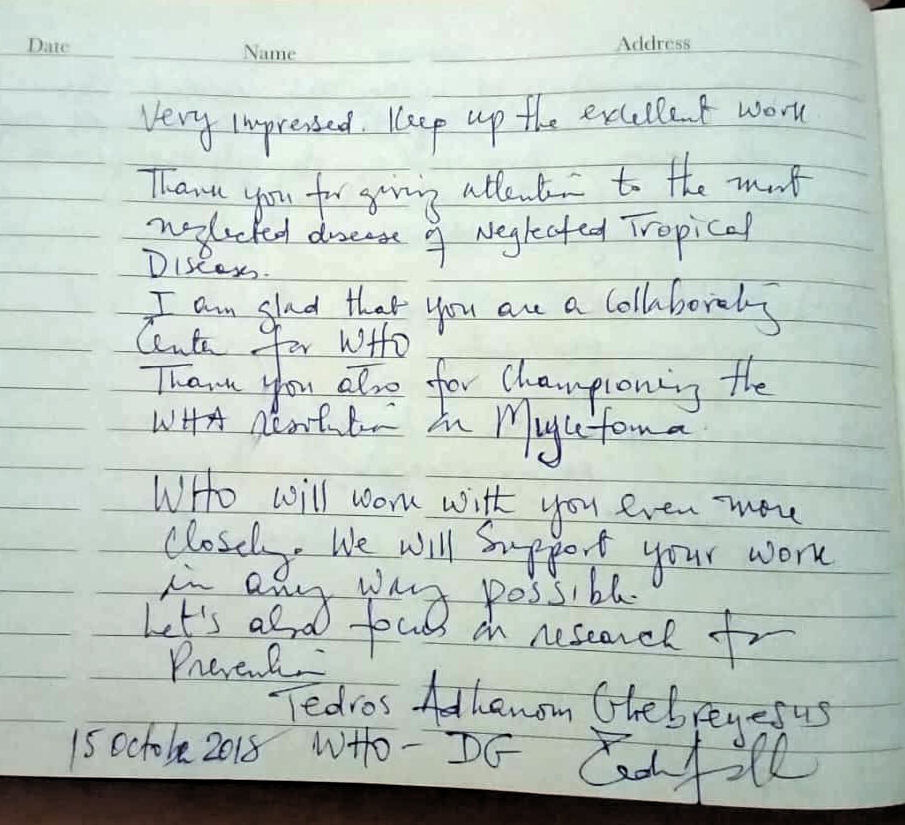 Date Name Address
Very Impressed. Keep up the excellent work
Thank you for giving attention to the most
neglected disease of Neglected Tropical
Diseases.
I am glad that you are a Collaborating
Center for WHO
Thank you also for Championing the
WHA resolution on Mycetoma.
WHO will work with you even more
closely. We will Support your work
in any way possible.
Let's also focus on research for
Prevention
Tedros Adhanom Ghebreyesus
15 October 2018 WHO - DG